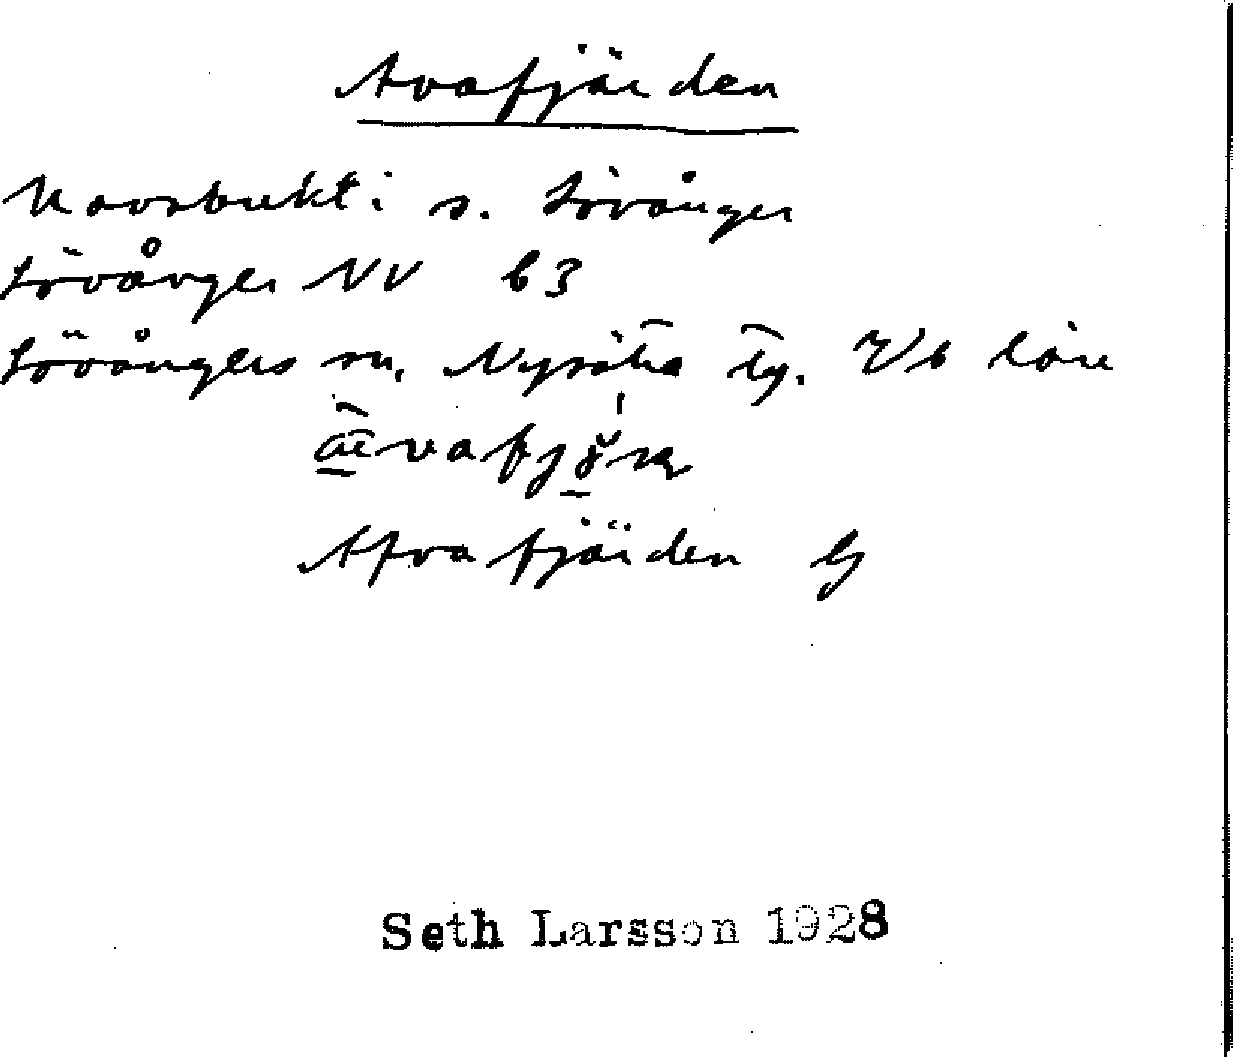 Avafjärden
Havsbukt i s. Lövånger
Lövånger NV b3
Lövångers sn. Nysätra tg. Vb län
Afvafjärden G
Seth Larsson 1928